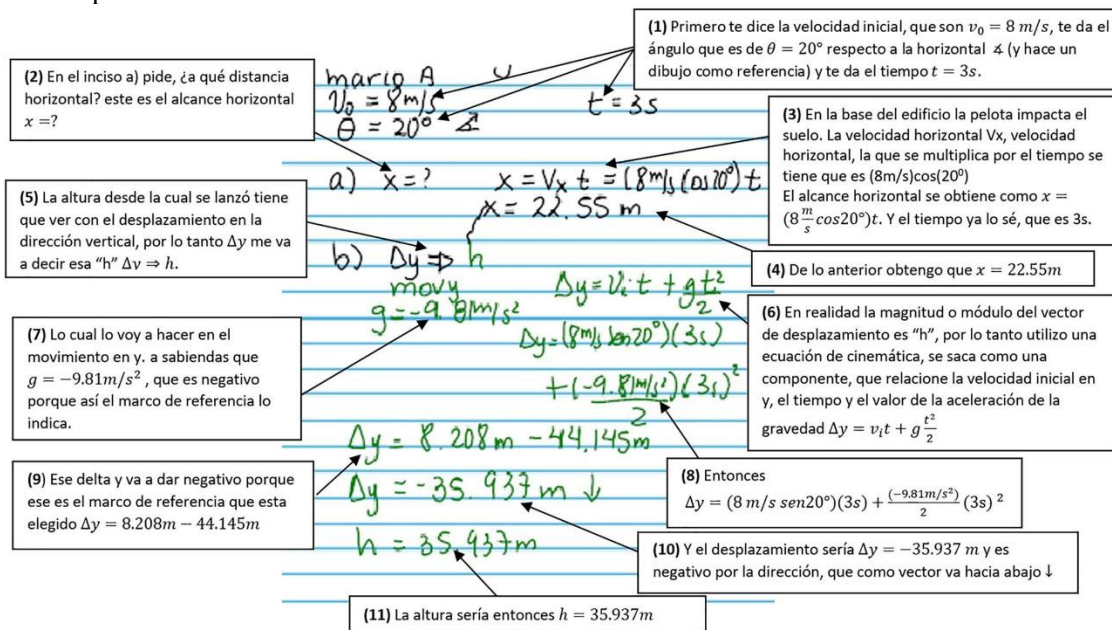 (1) Primero te dice la velocidad inicial, que son v₀ = 8 m/s, te da el
ángulo que es de θ = 20° respecto a la horizontal ∡ (y hace un
dibujo como referencia) y te da el tiempo t = 3s.
(2) En el inciso a) pide, ¿a qué distancia
horizontal? este es el alcance horizontal
x =?
mario A
V₀ = 8m/s
t = 3s
θ = 20° ∡
(3) En la base del edificio la pelota impacta el
suelo. La velocidad horizontal Vx, velocidad
horizontal, la que se multiplica por el tiempo se
tiene que es (8m/s)cos(20⁰)
El alcance horizontal se obtiene como x =
(8 m/s cos20°)t. Y el tiempo ya lo sé, que es 3s.
a) x = ? x = Vₓ t = (8m/s Cos 20°) t
x = 22.55 m
(4) De lo anterior obtengo que x = 22.55m
(5) La altura desde la cual se lanzó tiene
que ver con el desplazamiento en la
dirección vertical, por lo tanto Δy me va
a decir esa "h" Δy ⇒ h.
b) Δy ⇒ h
mov y
g = -9.81m/s²
Δy = Vᵢ t + gt²/2
Δy = (8m/s sen20°)(3s)
+ (-9.81m/s²)/2 (3s)²
(6) En realidad la magnitud o módulo del vector
de desplazamiento es "h", por lo tanto utilizo una
ecuación de cinemática, se saca como una
componente, que relacione la velocidad inicial en
y, el tiempo y el valor de la aceleración de la
gravedad Δy = vᵢt + g t²/2
(7) Lo cual lo voy a hacer en el
movimiento en y. a sabiendas que
g = −9.81m/s² , que es negativo
porque así el marco de referencia lo
indica.
Δy = 8.208m - 44.145m
(8) Entonces
Δy = (8 m/s sen20°)(3s) + (−9.81m/s²)/2 (3s) ²
(9) Ese delta y va a dar negativo porque
ese es el marco de referencia que esta
elegido Δy = 8.208m − 44.145m
Δy = -35.937 m ↓
h = 35.937m
(10) Y el desplazamiento sería Δy = −35.937 m y es
negativo por la dirección, que como vector va hacia abajo ↓
(11) La altura sería entonces h = 35.937m